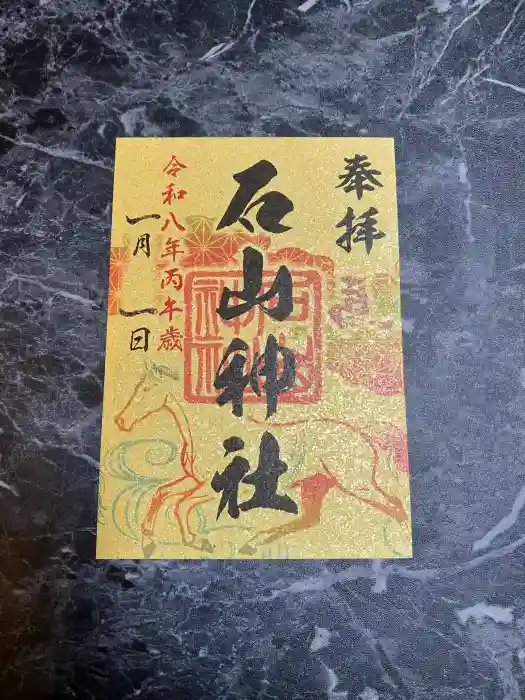 奉拝
石山神社
令和八年丙午歳
一月一日